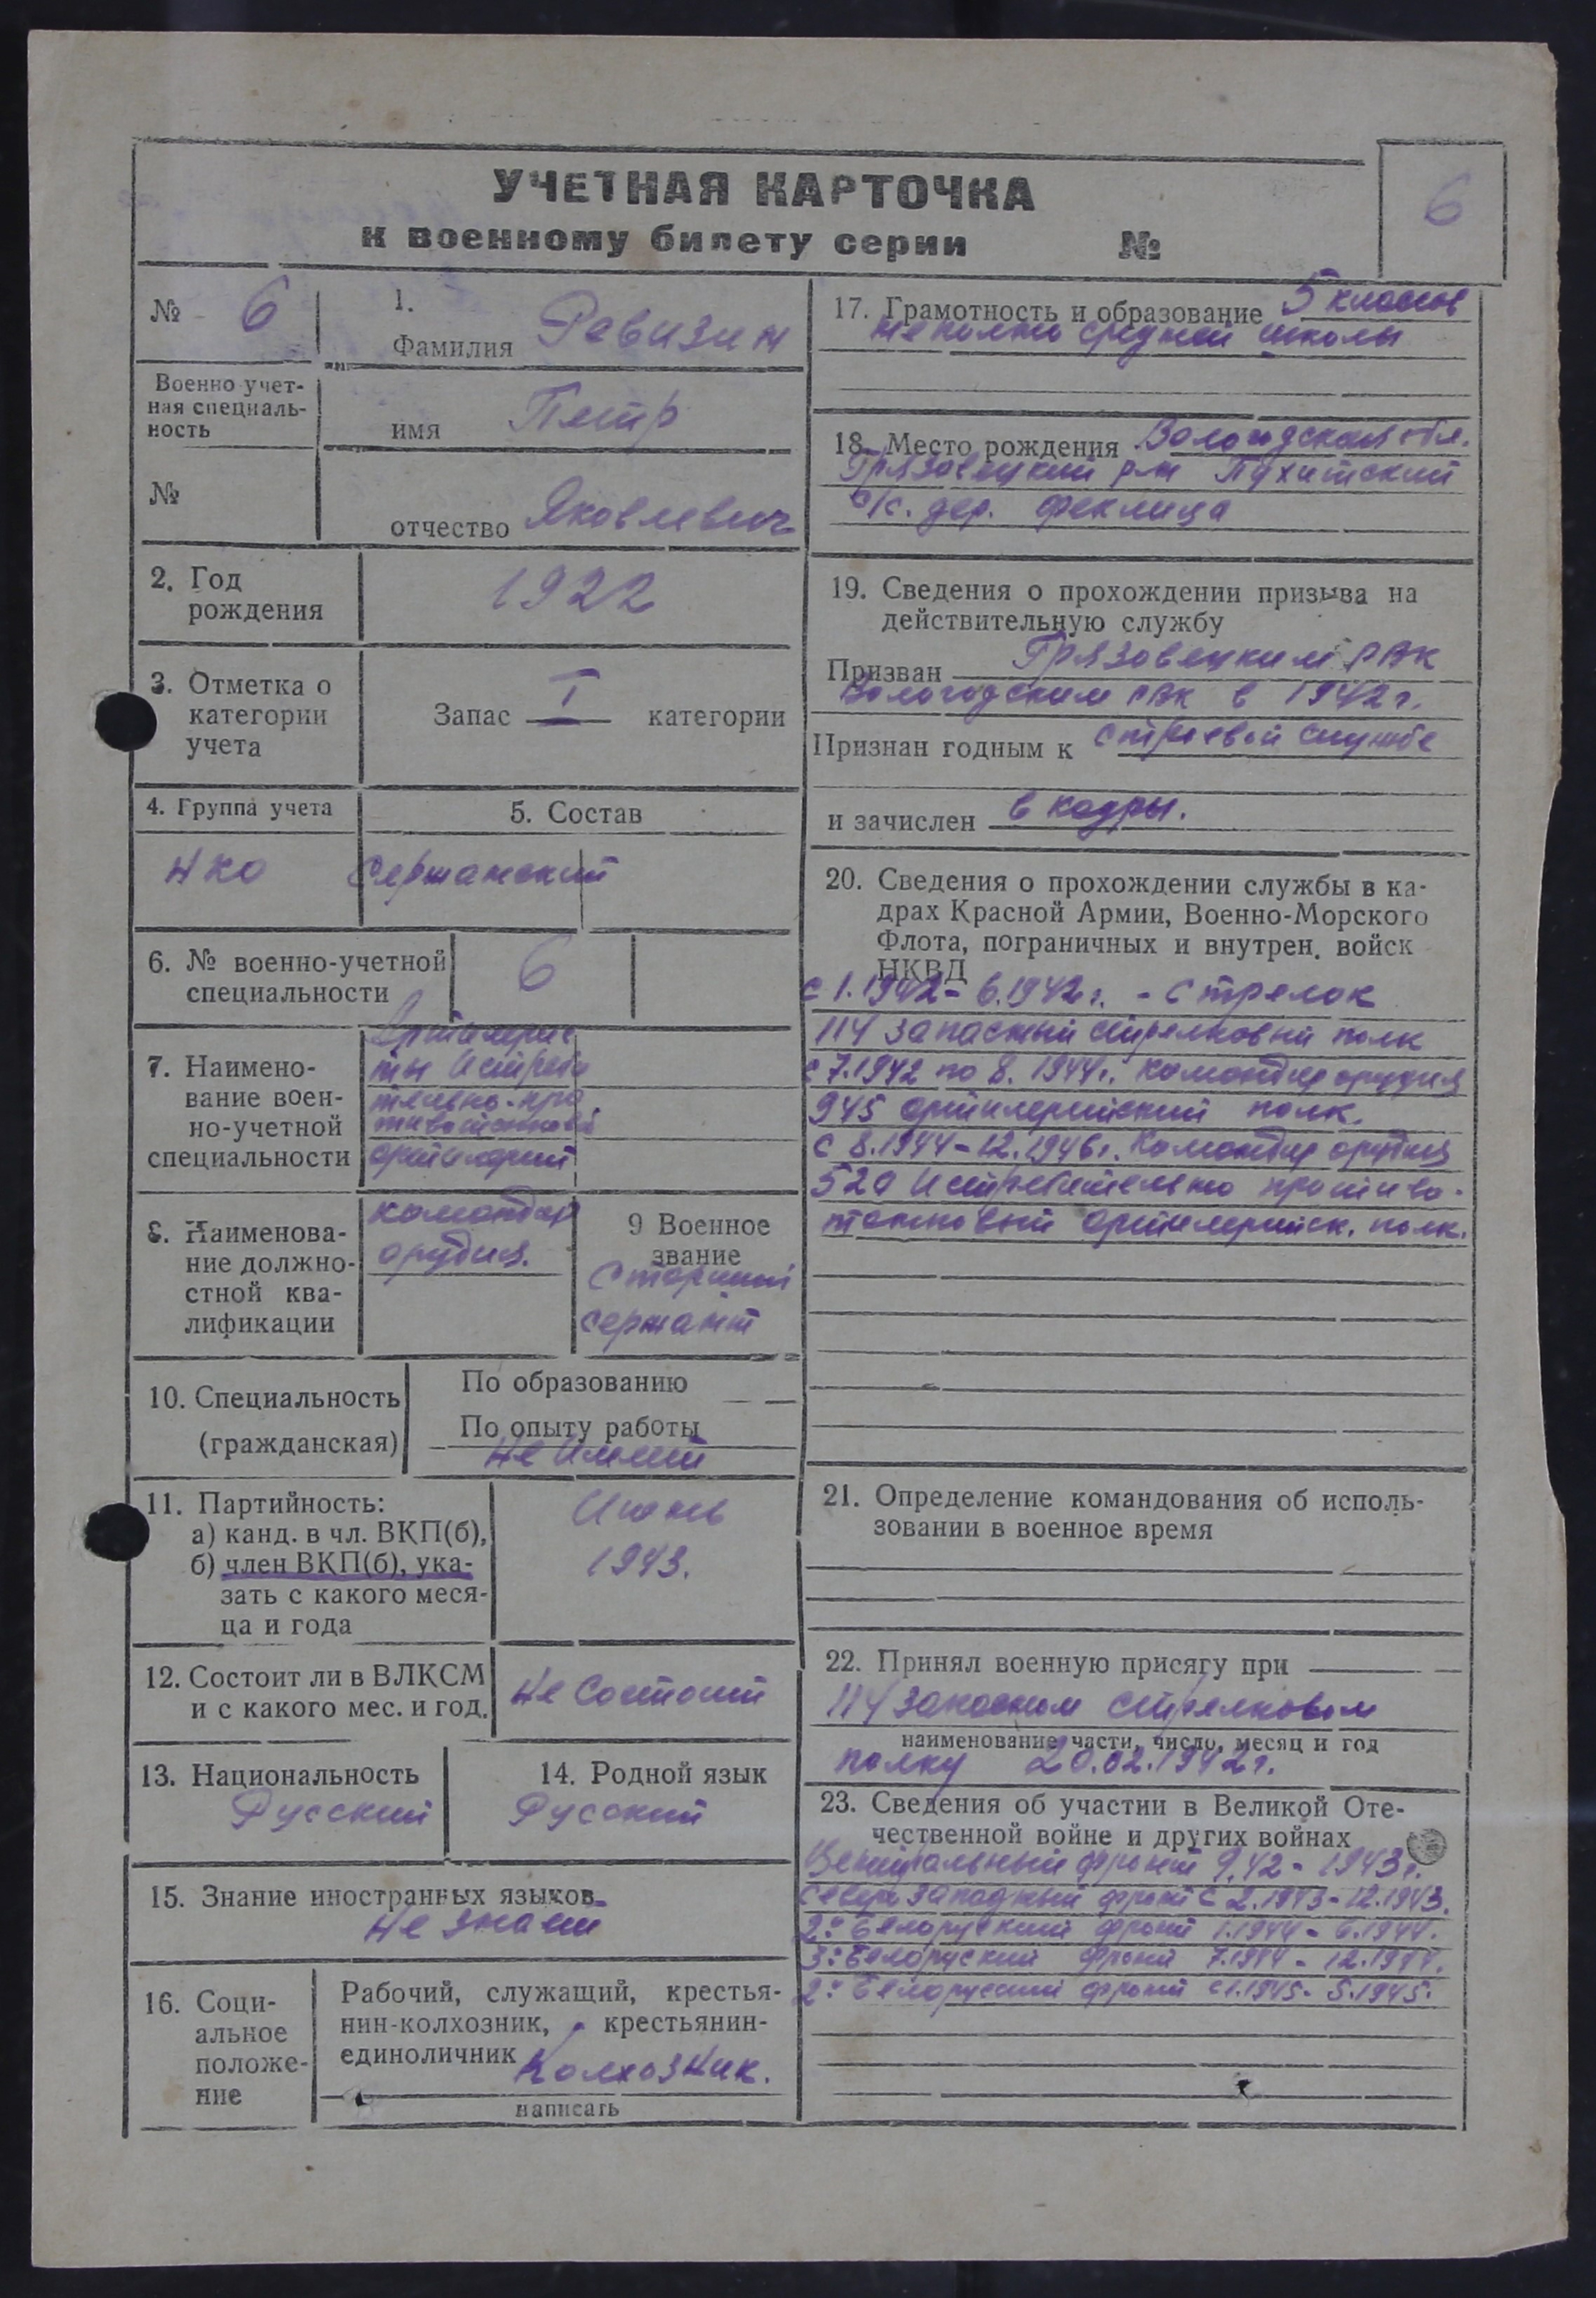 УЧЕТНАЯ КАРТОЧКА
к военному билету серии №
6
№ 6
1.
Фамилия Ревизин
Военно-учет-
ная специаль-
ность
имя Петр
№
отчество Яковлевич
2. Год
рождения
1922
3. Отметка о
категории
учета
Запас I категории
4. Группа учета
5. Состав
НКО
Сержанский
6. № военно-учетной
специальности
6
7. Наимено-
вание воен-
но-учетной
специальности
Артилерис
ты Истреби
тельно-про
тивотанковой
артилерии
8. Наименова-
ние должно-
стной ква-
лификации
командир
орудия.
9 Военное
звание
Старший
сержант
10. Специальность
(гражданская)
По образованию
По опыту работы
Не Имеет
11. Партийность:
а) канд. в чл. ВКП(б),
б) член ВКП(б), ука-
зать с какого меся-
ца и года
Июнь
1943.
12. Состоит ли в ВЛКСМ
и с какого мес. и год.
Не Состоит
13. Национальность
Русский
14. Родной язык
Русский
15. Знание иностранных языков
Не знает
16. Соци-
альное
положе-
ние
Рабочий, служащий, крестья-
нин-колхозник, крестьянин-
единоличник Колхозник.
написать
17. Грамотность и образование 5 классов
неполно средней школы
18. Место рождения Вологодская обл.
Грязовецкий р-н Пухитский
с/с. дер. Феклица
19. Сведения о прохождении призыва на
действительную службу
Призван Грязовецким РВК
Вологодским РВК в 1942 г.
Признан годным к строевой службе
и зачислен в кадры.
20. Сведения о прохождении службы в ка-
драх Красной Армии, Военно-Морского
Флота, пограничных и внутрен. войск
НКВД
с 1.1942 - 6.1942 г. - Стрелок
114 запасный стрелковый полк
с 7.1942 по 8.1944 г. командир орудия
945 артилерийский полк.
с 8.1944 - 12.1946 г. Командир орудия
520 Истребительно противо-
танковый артилерийск. полк.
21. Определение командования об исполь-
зовании в военное время
22. Принял военную присягу при
114 запасном стрелковом
наименование части, число, месяц и год
полку 20.02.1942 г.
23. Сведения об участии в Великой Оте-
чественной войне и других войнах
Центральный фронт 9.42 - 1943 г.
Северо западный фронт с 2.1943 - 12.1943.
2й Белоруский фронт 1.1944 - 6.1944.
3й Белоруский фронт 7.1944 - 12.1944.
2й Белоруский фронт с 1.1945 - 5.1945.